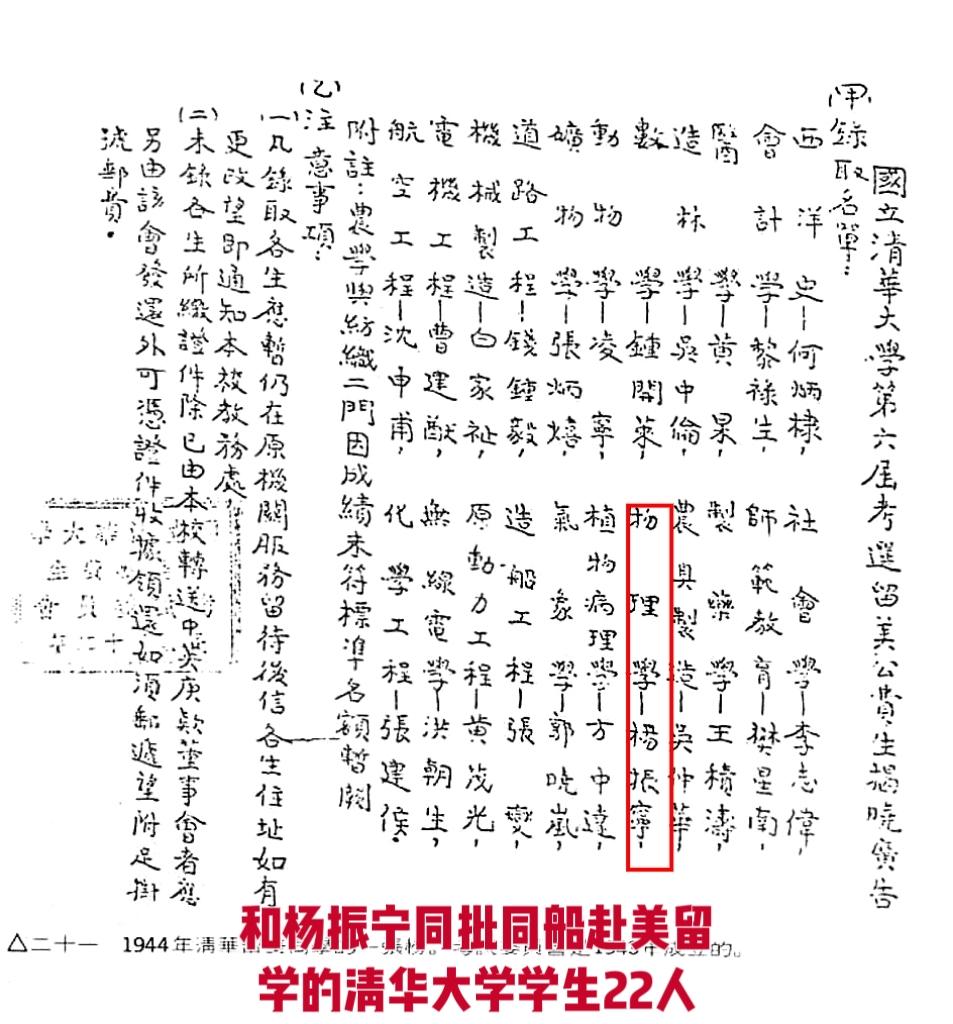 國立清華大學第六屆考選留美公費生揭曉廣告
(甲)錄取名單：
西洋史—何炳棣，社會學—李志偉，
會計學—黎祿生，師範教育—樊星南，
醫學—黃杲，製藥學—王積濤，
造林學—吳中倫，農具製造—吳仲華，
數學—鍾開萊，物理學—楊振寧，
動物學—凌寧，植物病理學—方中達，
礦物學—張炳熺，氣象學—郭曉嵐，
道路工程—錢鍾毅，造船工程—張燮，
機械製造—白家祉，原動力工程—黃茂光，
電機工程—曹建猷，無線電學—洪朝生，
航空工程—沈申甫，化學工程—張建侯。
附註：農學與紡織二門因成績未符標準名額暫闕
(乙)注意事項：
(一)凡錄取各生應暫仍在原機關服務留待後信各生住址如有
更改望即通知本校教務處
(二)未錄各生所繳證件除已由本校轉送中英庚款董事會者應
另由該會發還外可憑證件收據領還如須郵遞望附足掛
號郵費。
△二十一 1944年清華
成立的。
和杨振宁同批同船赴美留
学的清华大学学生22人